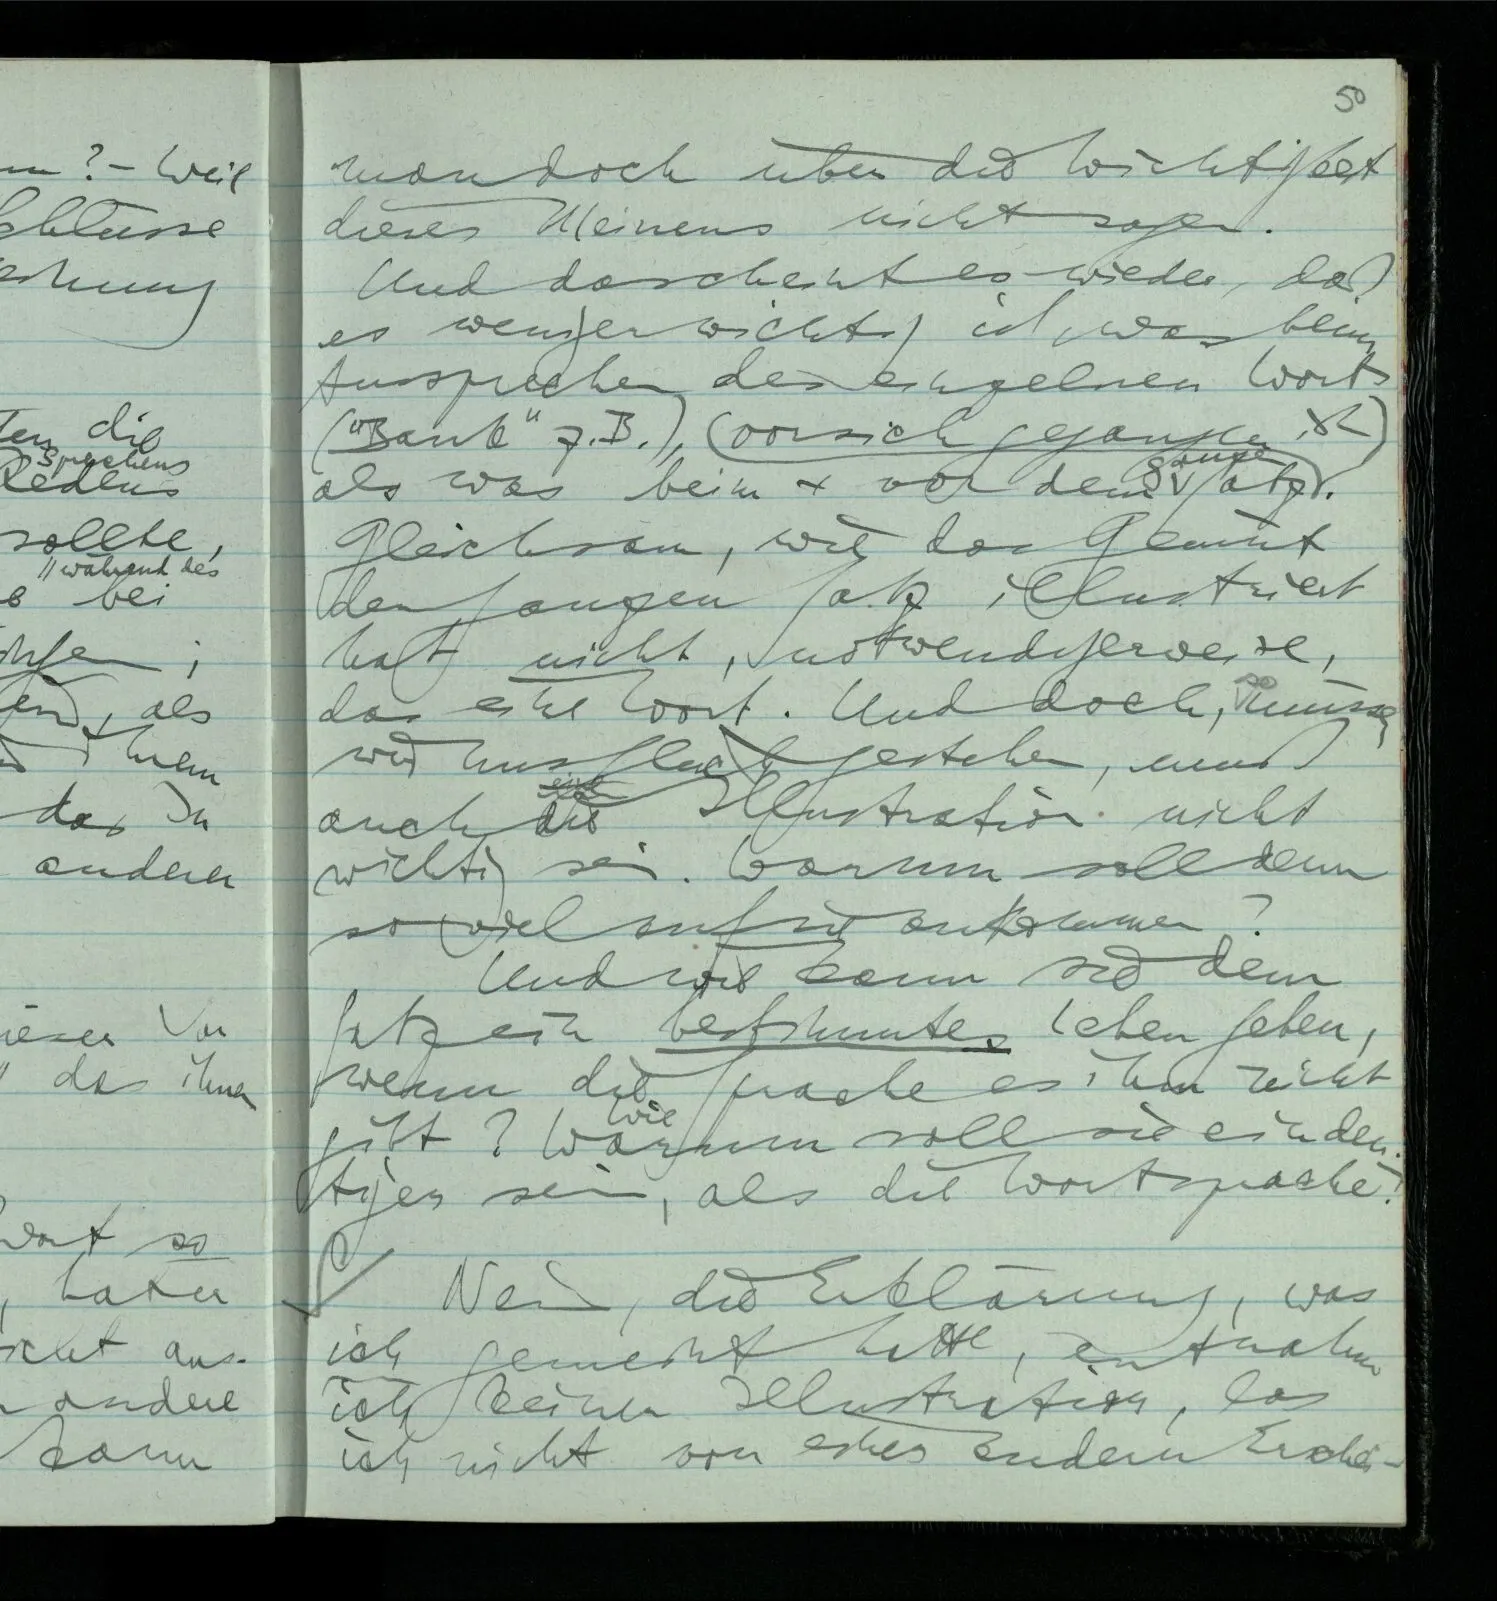 n ? – Weil
Schlüsse
ehung
ten die
Sprechens
Redens
sollte,
"während des
bei
;
, als
ihrem
das In
anderer
dieser Vor
das ihnen
Wort so
, hat er
nicht aus-
andere
kann
50
man doch über die Wichtigkeit
dieses Meinens nicht sagen.
Und da scheint es wieder, daß
es weniger wichtig ist, was beim
Aussprechen des einzelnen Worts
("Bank" z.B.), (vorsich gegangen ist)
ganze
als was beim & vor dem Satz.
Gleichsam, wie das Gemüt
den ganzen Satz illustriert
hat, nicht, notwendigerweise,
das eine Wort. Und doch, so müssen
wir uns gleich gestehen, muß
eine
auch die Illustration nicht
wichtig sein. Warum soll denn
so viel auf sie ankommen?
Und wie kann sie dem
Satz ein bestimmtes Leben geben,
wenn die Sprache es ihm nicht
Wie
gibt? Warum soll sie eindeu-
tiger sein, als die Wortsprache?
Nein, die Erklärung, was
ich gemeint hatte, entnahm
ich keiner Illustration, las
ich nicht von einer andern Erschei-